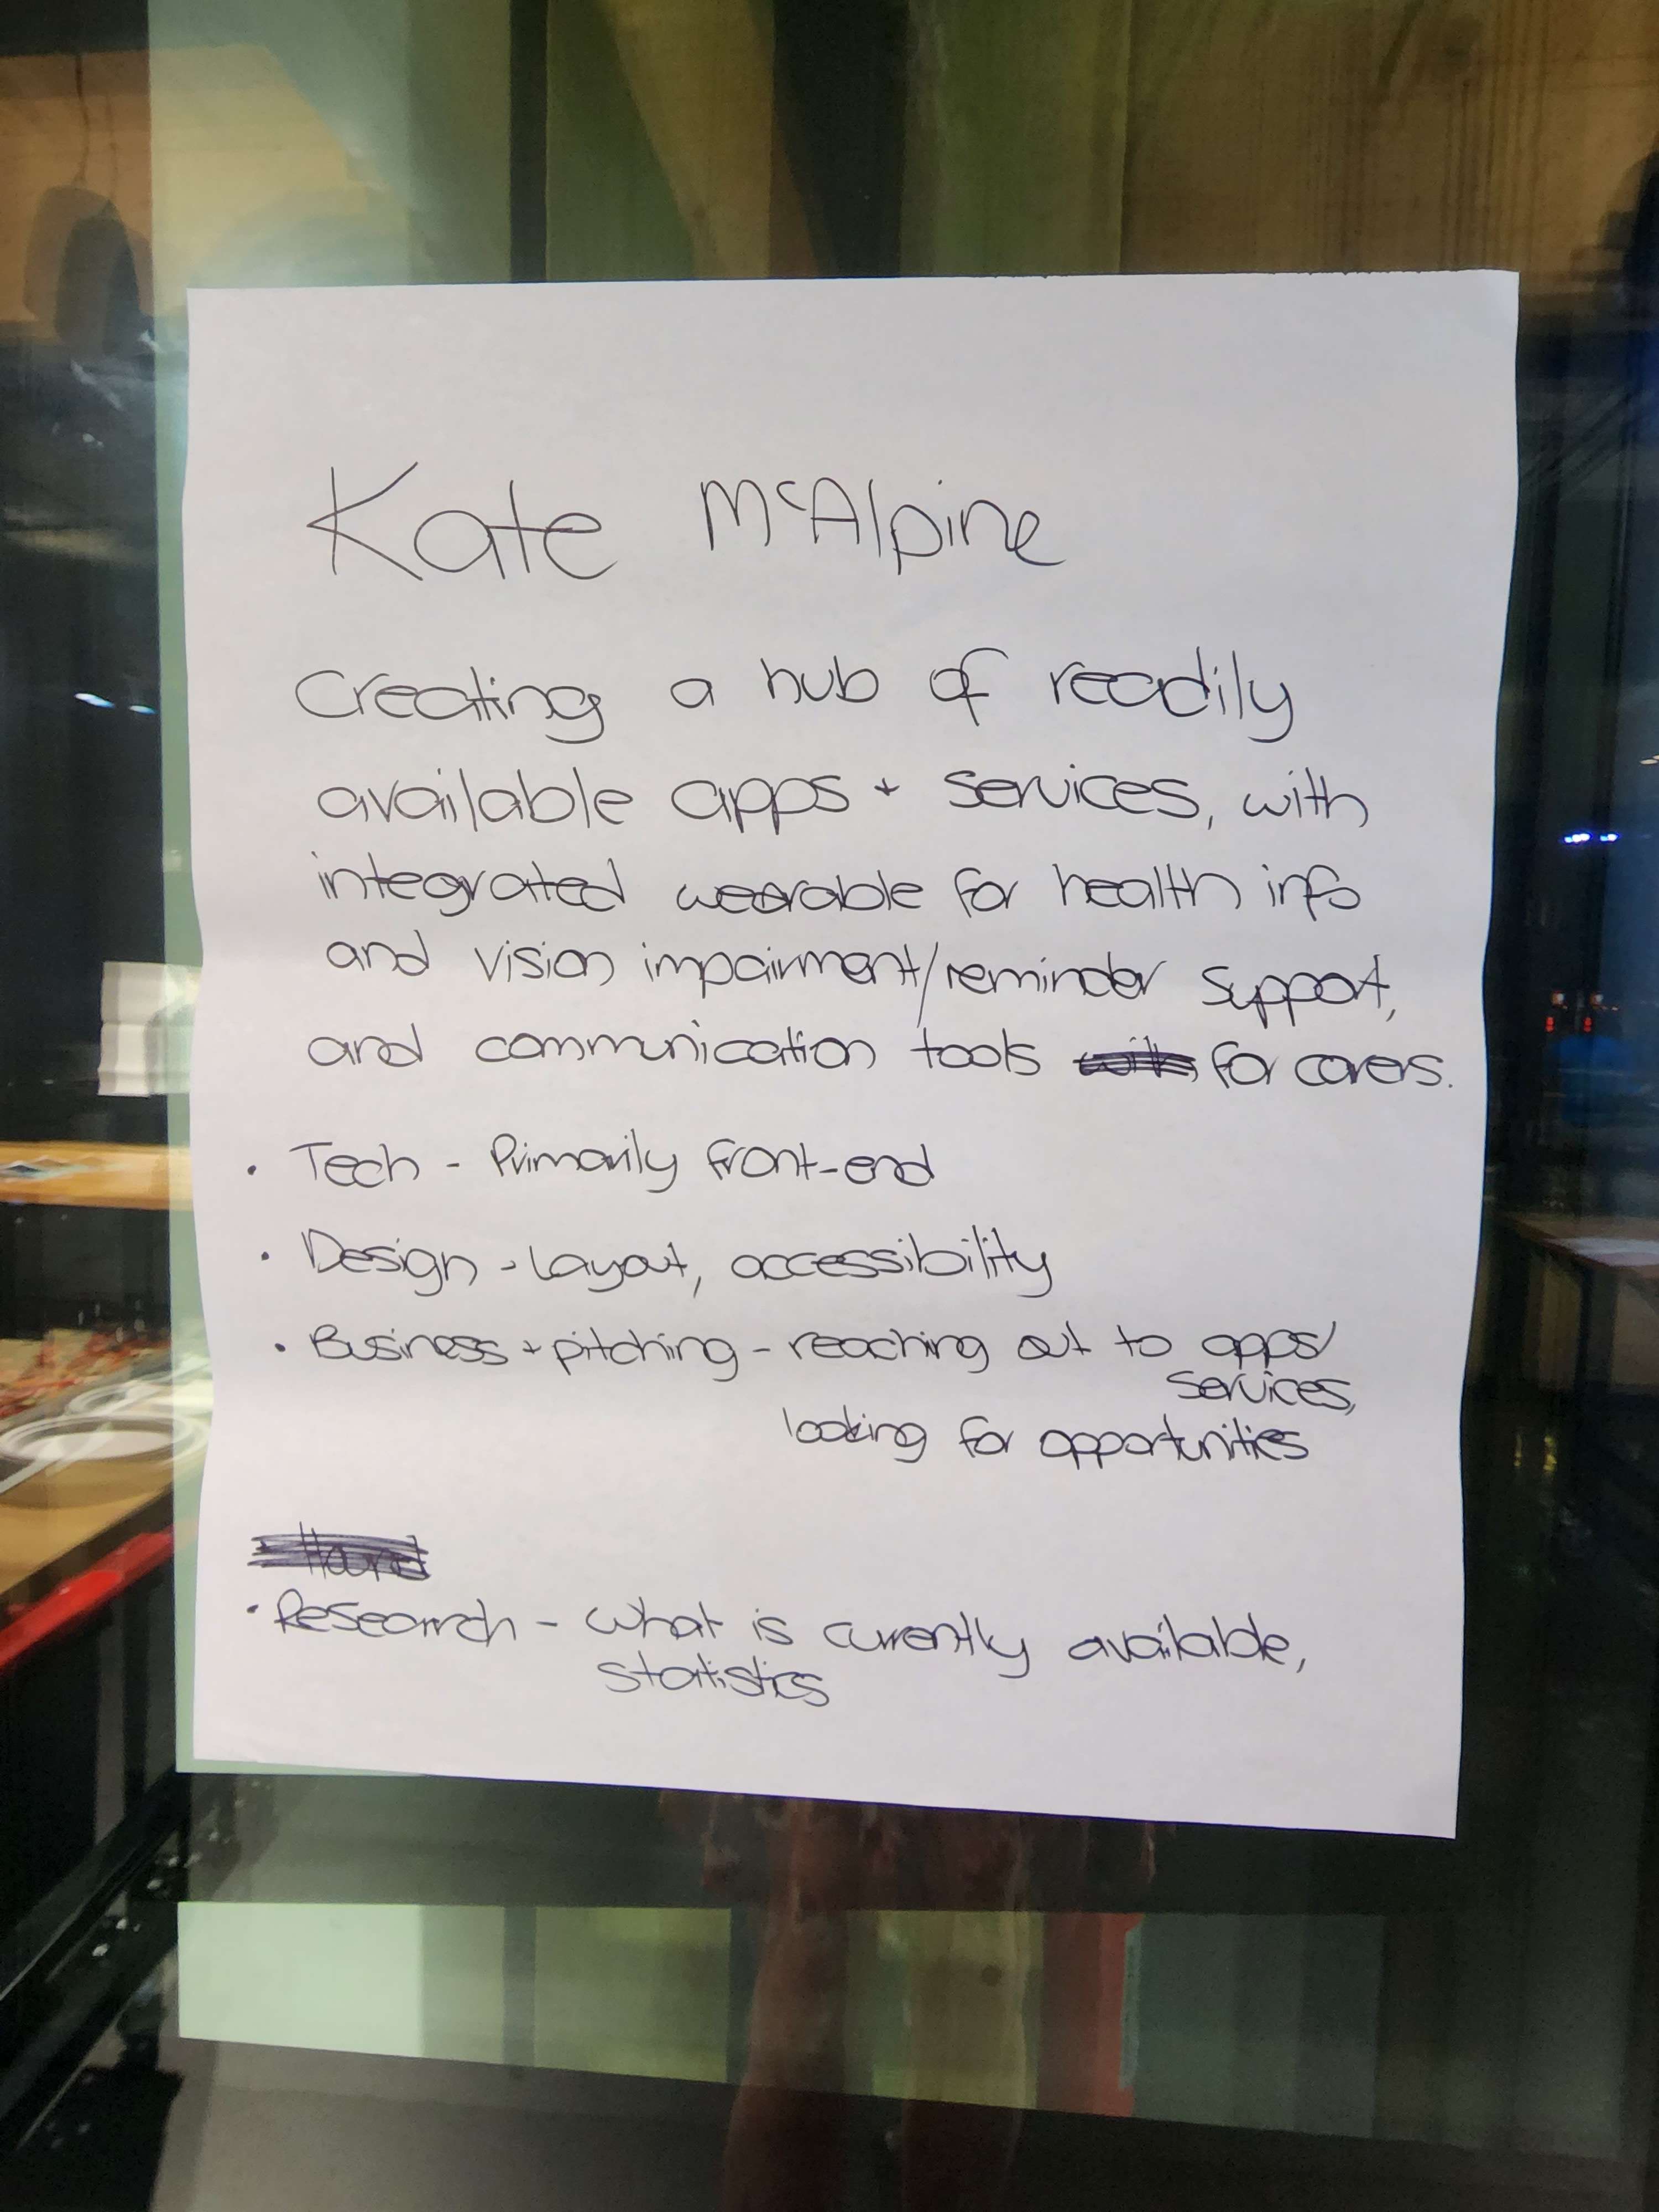 Kate McAlpine
Creating a hub of readily
available apps + services, with
integrated wearable for health info
and vision impairment/reminder support,
and communication tools for carers.
• Tech - Primarily front-end
• Design - Layout, accessibility
• Business + pitching - reaching out to apps/
services,
looking for opportunities
• Research - what is currently available,
statistics